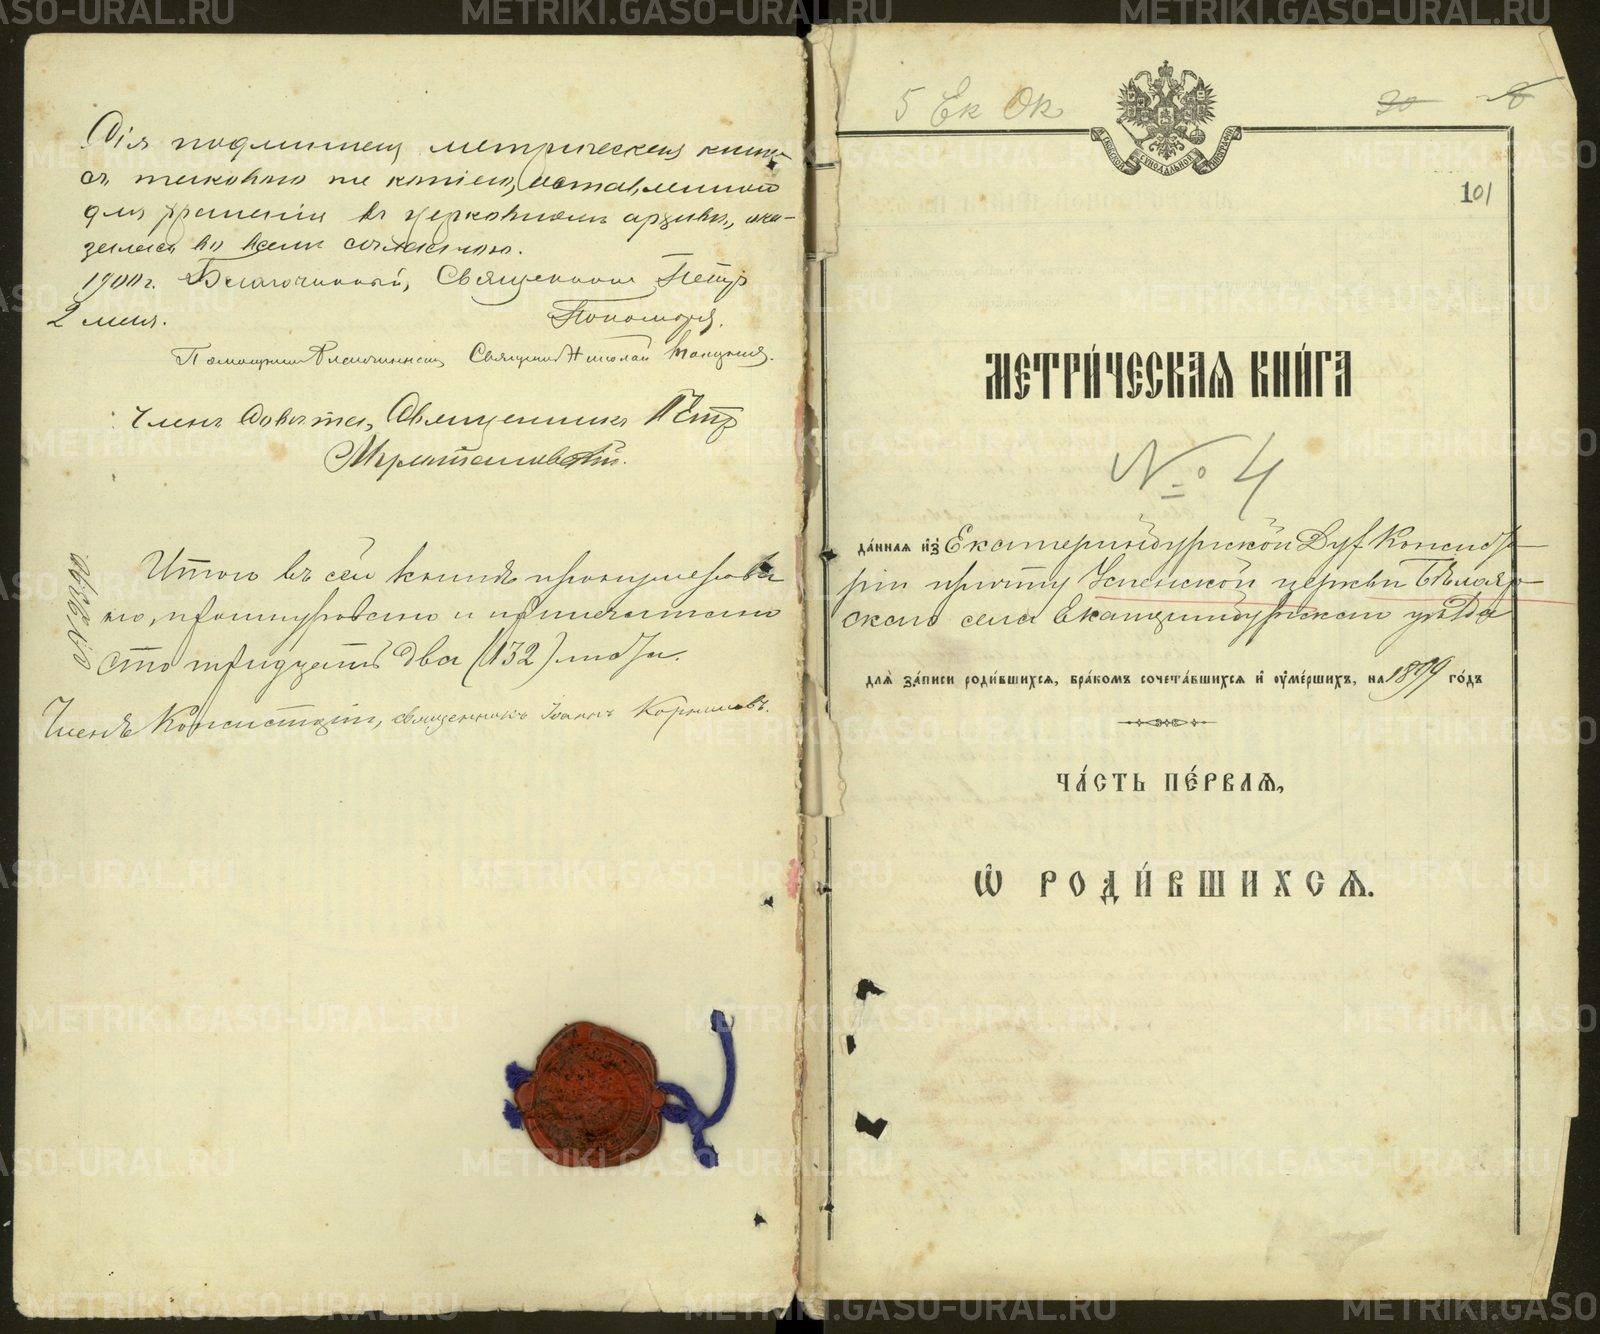 Сія подлинная метрическая книга
съ таковою же копіею, оставленною
для храненія въ церковномъ архивѣ, ока-
залась во всемъ согласною.
1900 г. Благочинный, Священникъ Петръ
2 мая.
Пономаревъ.
Помощникъ Благочиннаго, Священникъ Николай
Членъ Совѣта, Священникъ Петръ
Итого въ сей книгѣ пронумерова
но, прошнуровано и припечатано
сто тридцать два (132) листа.
Членъ Консисторіи, священникъ Іоаннъ Корниловъ.
5 Ек Ок
30
101
МЕТРИ́ЧЕСКАѦ КНИ́ГА
№ 4
да́нная из̾ Екатеринбургской Дух Консисто
ріи причту Успенской церкви Бѣлояр
скаго села Екатеринбургскаго уѣзда
длѧ̀ за́писи роди́вшихсѧ, бра́комъ сочета́вшихсѧ и҆ оу҆ме́ршихъ, на 1899 го́дъ
ЧА́СТЬ ПЕ́РВАѦ,
Ѡ҆ РОДИ́ВШИХСѦ.
METRIKI.GASO-URAL.RU